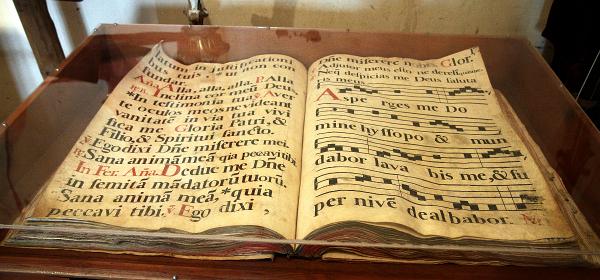 hac tuis ut
Alla, alla, alla. ℟. Alla
*In testimonia tua. ℣. A
te oculos meos ne videant
vanitatē in via tua vivi
fica me Gloria Patri, &
Filio, & Spiritui sancto.
Ego dixi Dñe miserere mei.
Sana animā meā qia peccavi tibi
In Fer. Aña. Deduc me Dñe
in semitā mādatorū tuorū.
Sana animā meā, *quia
peccavi tibi. ℣. Ego dixi,
ne miserere Glor.
Adjutor meus esto ne
Neq despicias me Deus saluta
meus
Aspe rges me Do
mine hyssopo & mun
dabor lava bis me, & su
per nivē dealbabor.